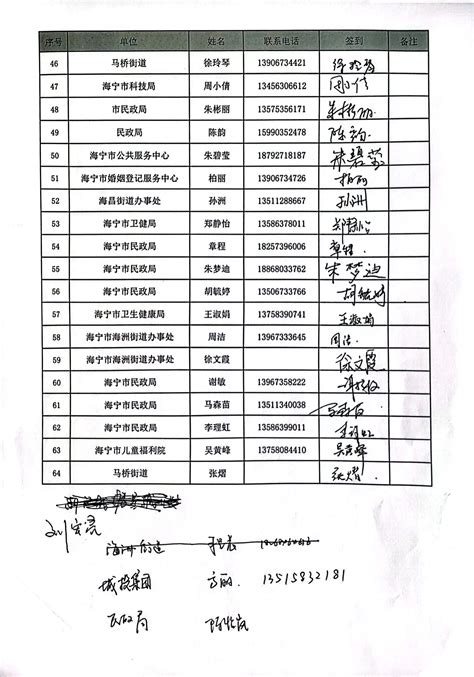 序号 单位 姓名 联系电话 签到 备注
46 马桥街道 徐玲琴 13906734421 徐玲琴
47 海宁市科技局 周小倩 13456306612 周小倩
48 市民政局 朱彬丽 13575356171 朱彬丽
49 民政局 陈韵 15990352478 陈韵
50 海宁市公共服务中心 朱碧莹 18792718187 朱碧莹
51 海宁市婚姻登记服务中心 柏丽 13906734726 柏丽
52 海昌街道办事处 孙洲 13511288667 孙洲
53 海宁市卫健局 郑静怡 13586378011 郑静怡
54 海宁市民政局 章程 18257396006 章程
55 海宁市民政局 朱梦迪 18868033762 朱梦迪
56 海宁市民政局 胡毓婷 13506733766 胡毓婷
57 海宁市卫生健康局 王淑娟 13758390741 王淑娟
58 海宁市海洲街道办事处 周洁 13967333645 周洁
59 海宁市海洲街道办事处 徐文霞 徐文霞
60 海宁市民政局 谢敏 13967358222
61 海宁市民政局 马森苗 13511340038
62 海宁市民政局 李理虹 13586399011 李理虹
63 海宁市儿童福利院 吴黄峰 13758084410 吴黄峰
64 马桥街道 张熠 张熠
城投集团 方丽 13515832181
民政局